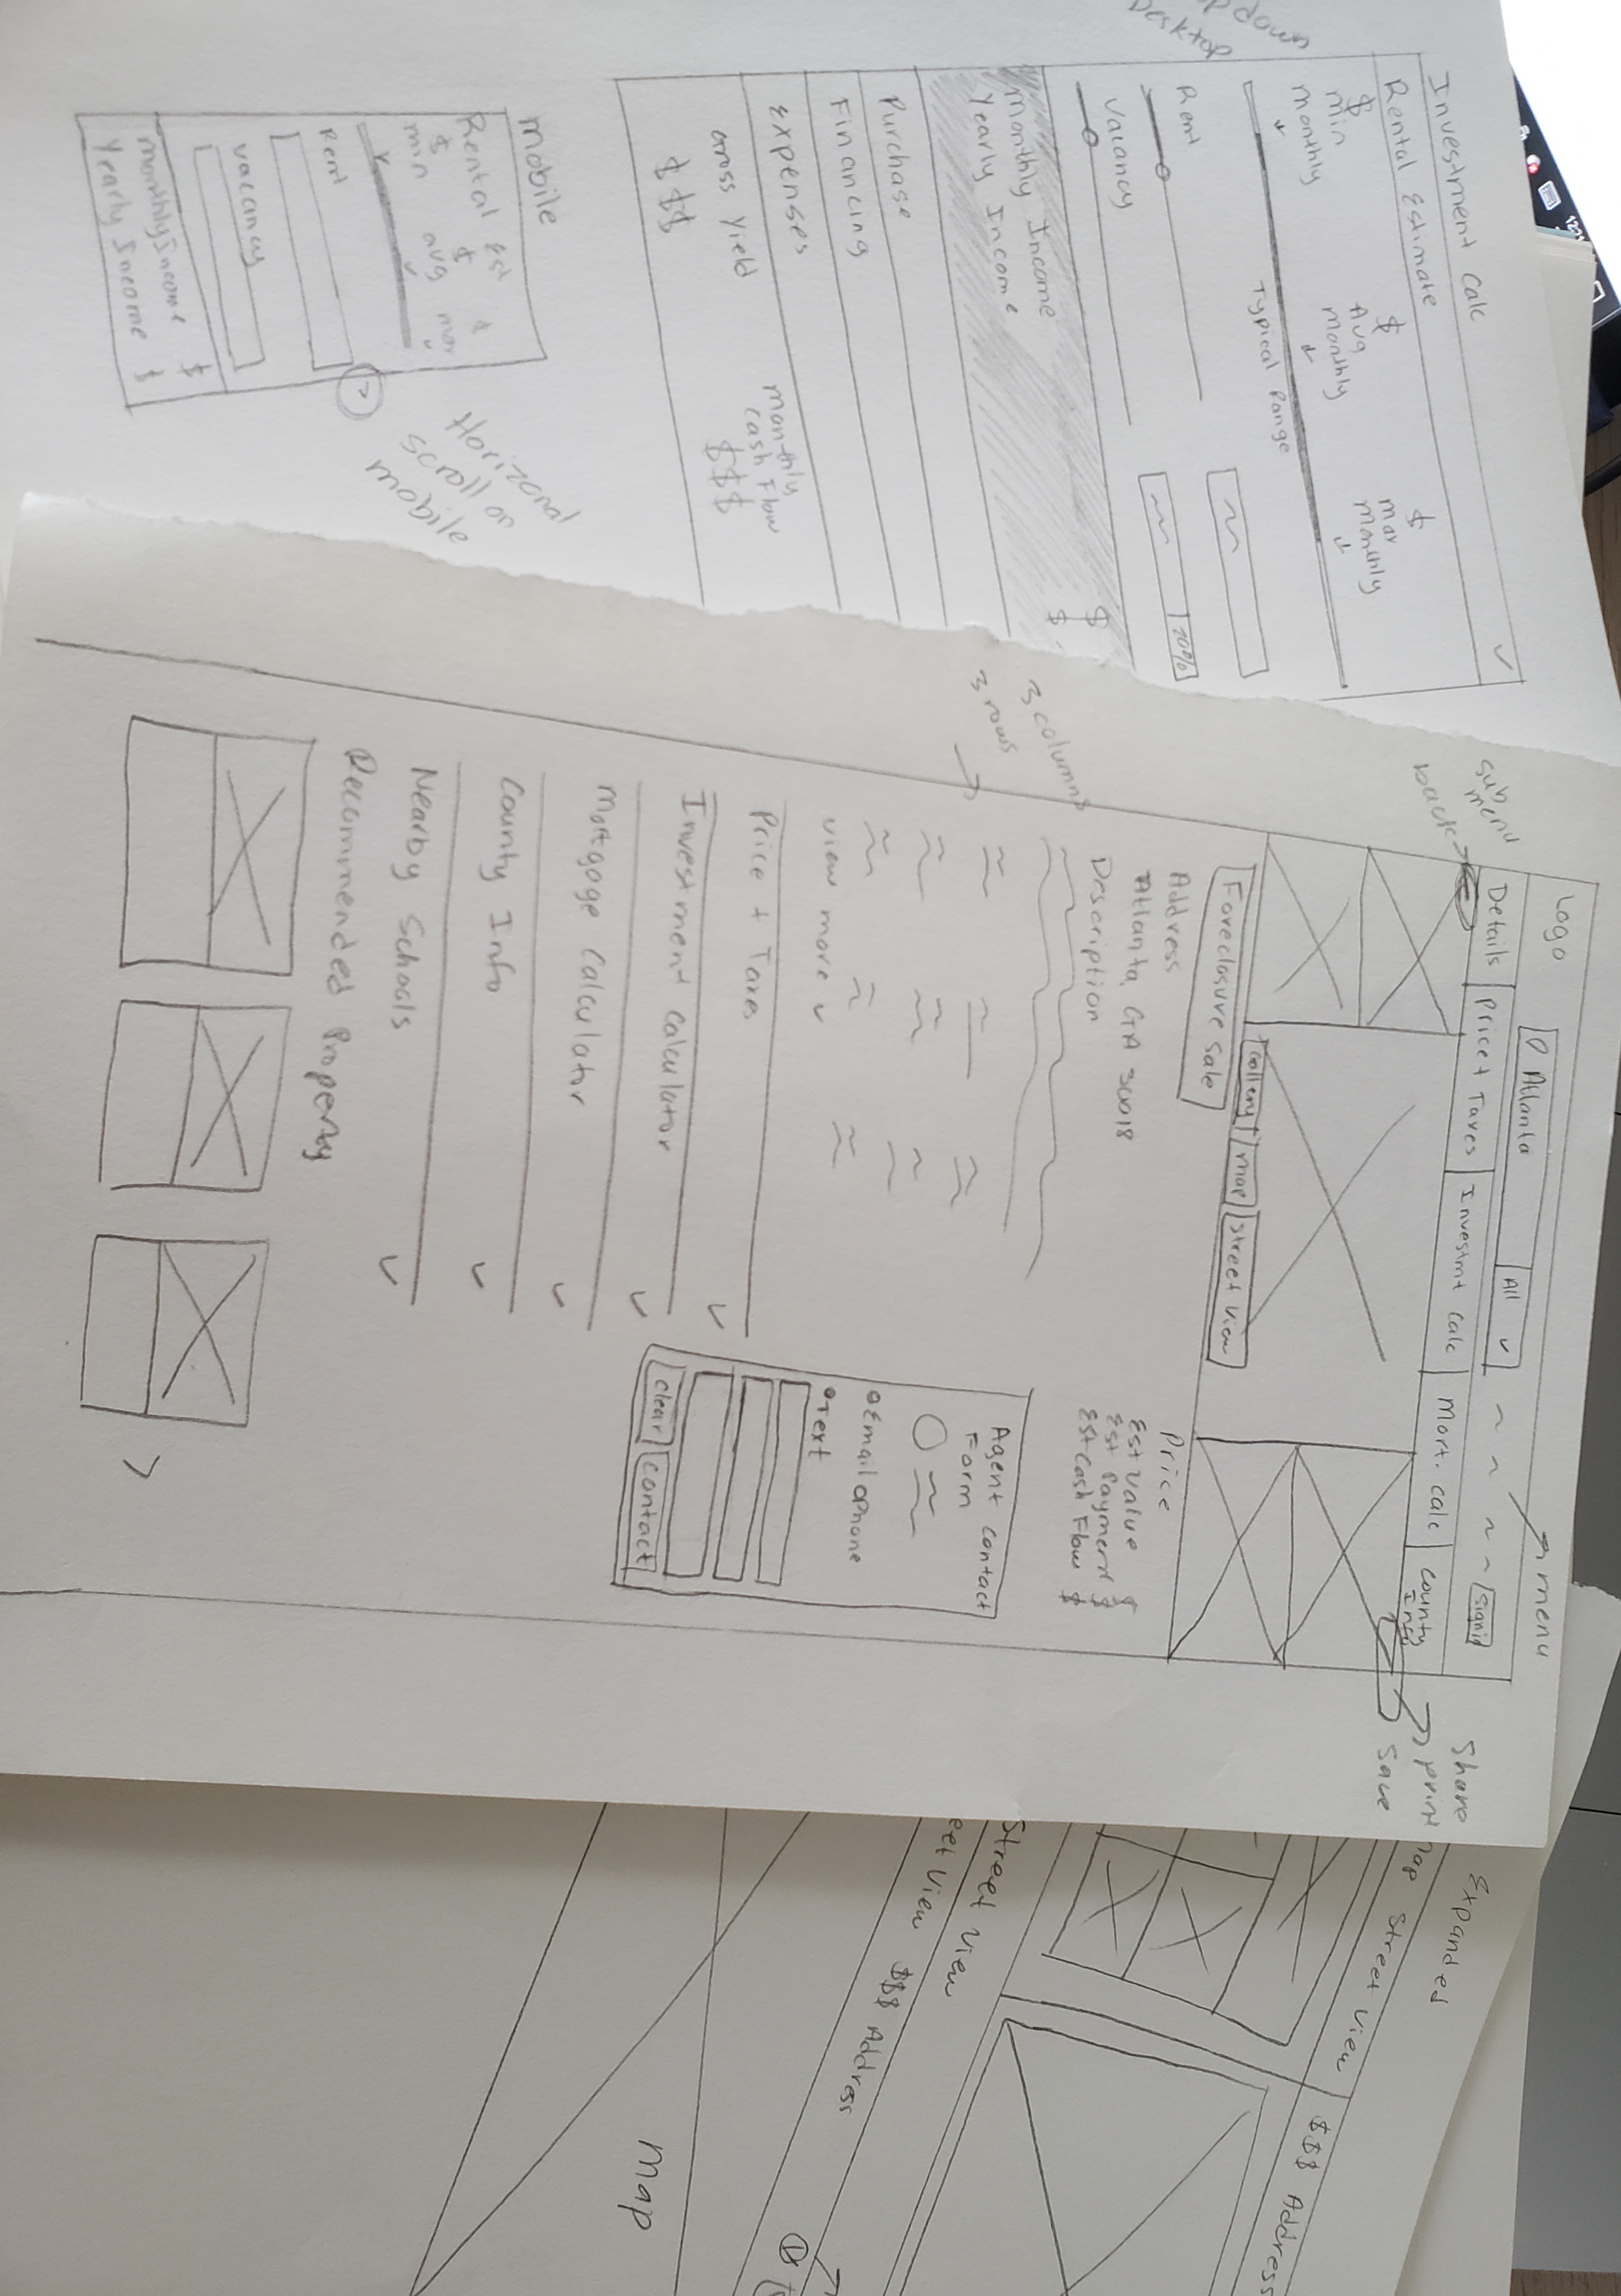 Investment Calc
Rental Estimate
$ $ $
min Avg max
monthly monthly monthly
Typical Range
Rent
20%
Vacancy
Monthly Income $
Yearly Income $
Purchase
Financing
Expenses
Gross Yield
monthly
cash Flow
$$$ $$$
Desktop
mobile
Rental Est
$ $ $
min avg max
Rent
>
vacancy
monthly Income $
Yearly Income $
Horizonal
scroll on
mobile
sub
menu
back
Logo
Atlanta
All
menu
Signin
Details
Price + Taxes
Investmt Calc
Mort. Calc
County
Info
Share
print
Save
Gollery
map
street view
Foreclosure Sale
Address
Atlanta, GA 30018
Description
Price
Est Value $
Est Payment $
Est Cash Flow $
3 columns
3 rows
view more
Agent Contact
Form
Email Phone
Text
clear
contact
Price + Taxes
Investment Calculator
Mortgoge Calculator
County Info
Nearby Schools
Recommended Property
>
Expanded
map Street View $$$ Address
Street View
eet View $$$ Address
map